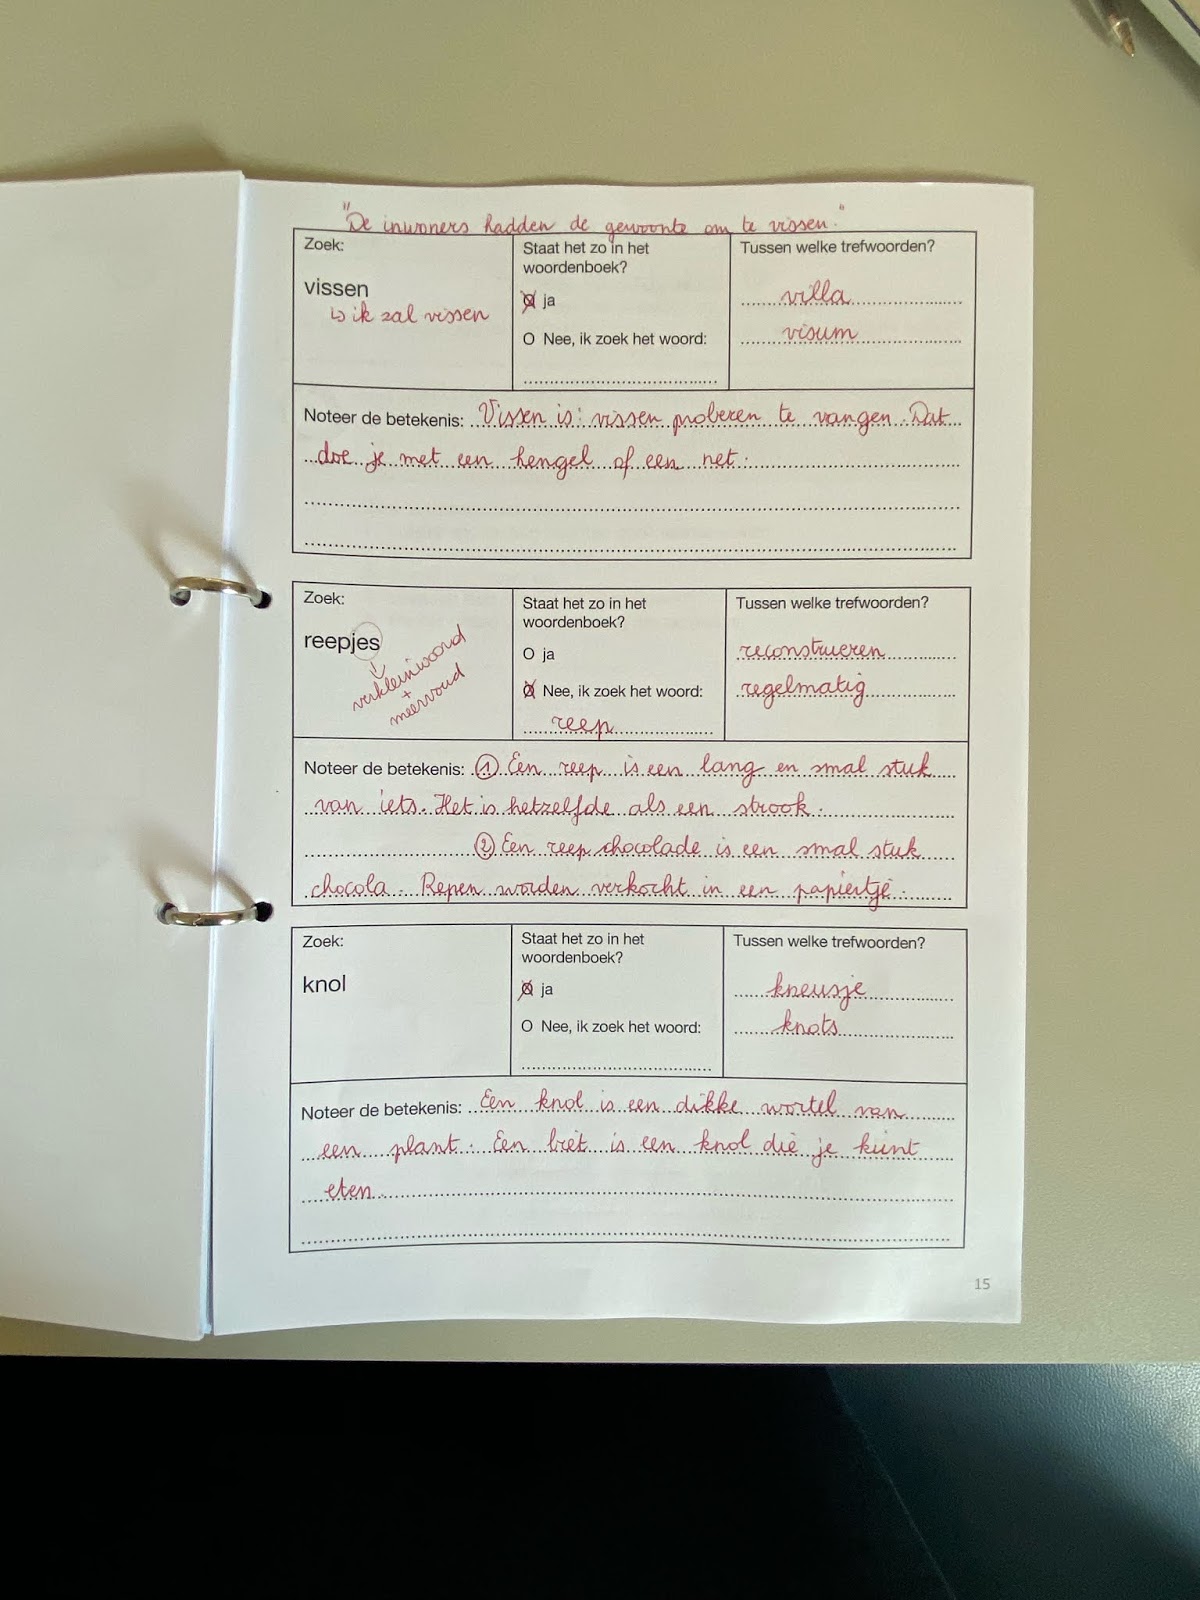 "De inwoners hadden de gewoonte om te vissen."
Zoek:
vissen
↳ ik zal vissen
Staat het zo in het
woordenboek?
ja
O Nee, ik zoek het woord:
Tussen welke trefwoorden?
villa
visum
Noteer de betekenis: Vissen is: vissen proberen te vangen. Dat
doe je met een hengel of een net.
Zoek:
reepjes
verkleinwoord
+
meervoud
Staat het zo in het
woordenboek?
O ja
Nee, ik zoek het woord:
reep
Tussen welke trefwoorden?
reconstrueren
regelmatig
Noteer de betekenis: ① Een reep is een lang en smal stuk
van iets. Het is hetzelfde als een strook.
② Een reep chocolade is een smal stuk
chocola. Repen worden verkocht in een papiertje.
Zoek:
knol
Staat het zo in het
woordenboek?
ja
O Nee, ik zoek het woord:
Tussen welke trefwoorden?
kneusje
knots
Noteer de betekenis: Een knol is een dikke wortel van
een plant. Een biet is een knol die je kunt
eten.
15